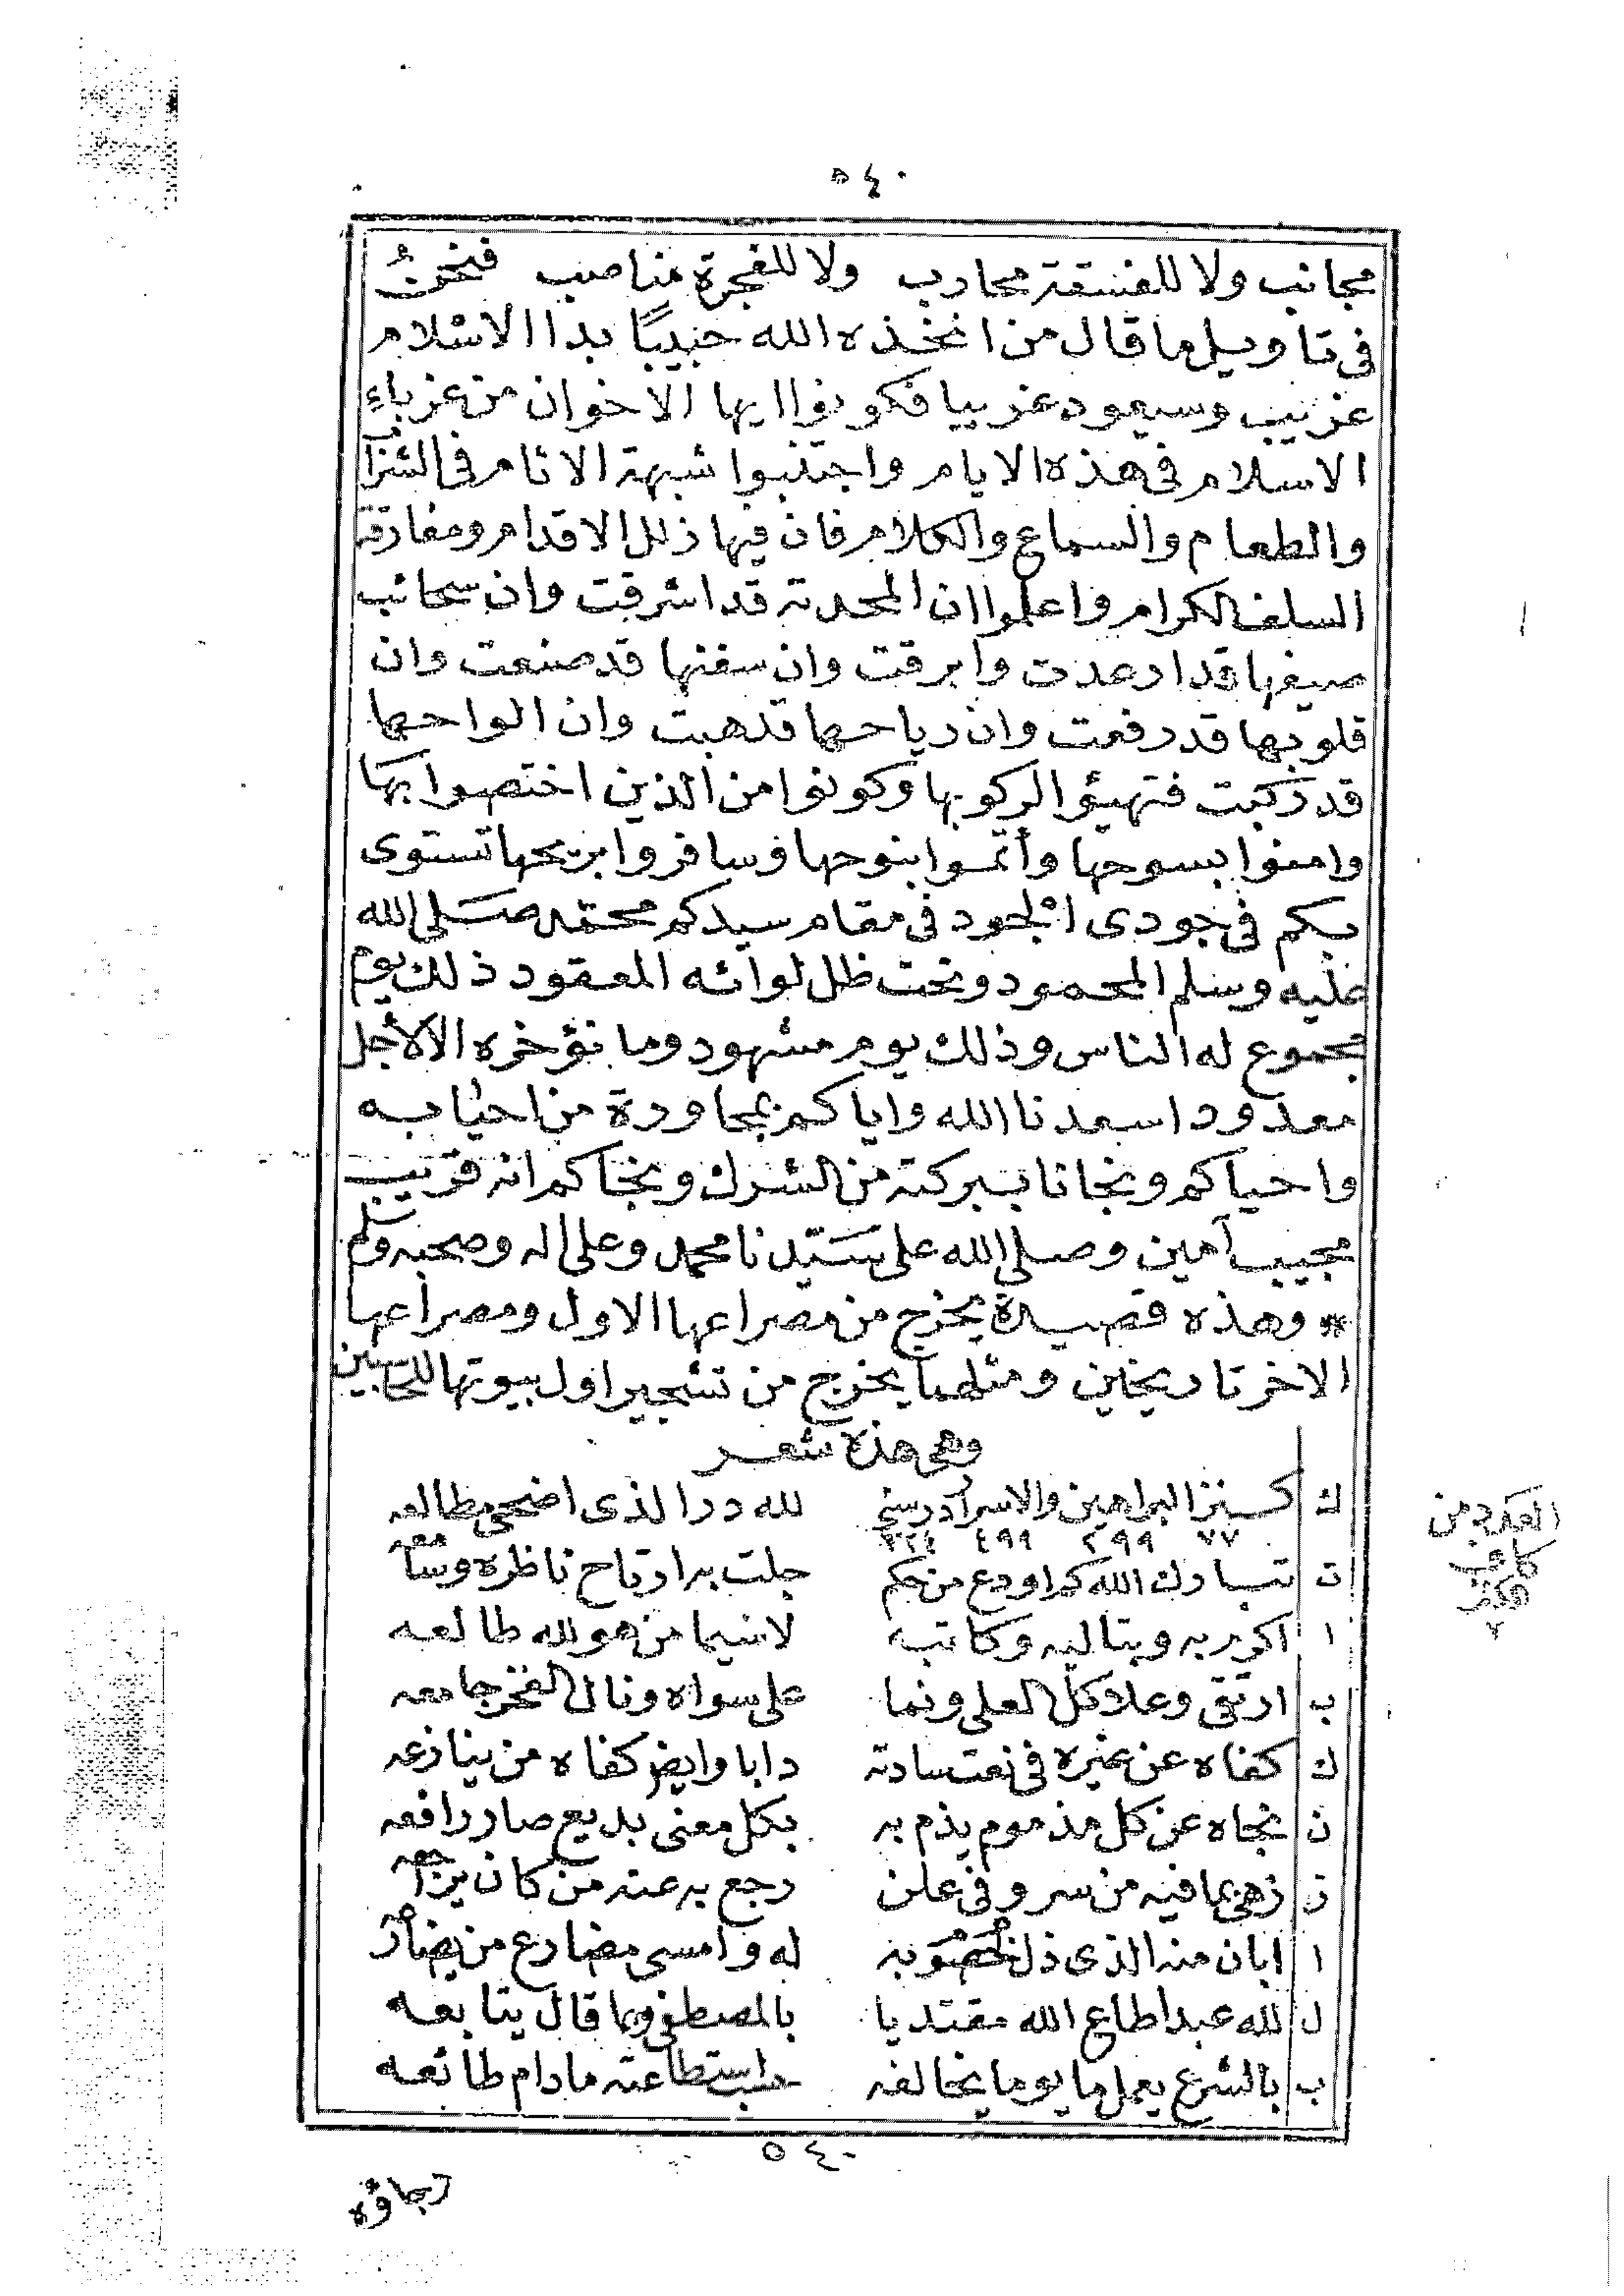 ٥٤٠
مجانب ولا للفسقة محارب ولا للفجرة مناصب فنخرت
في تاويل ما قال من اتخذه الله حبيبًا بدا الاسلام
غريب وسيعود غريبا فكونوا ايها الاخوان من غرباء
الاسلام في هذه الايام واجتنبوا شبهة الاثام في الشراب
والطعام والسماع والكلام فان فيها زلل الاقدام ومفارقة
السلف الكرام واعلموا ان المحمدية قد اشرقت وان سحائب
صيفها قد ارعدت وابرقت وان سفنها قد صنعت وان
قلوبها قد رفعت وان رياحها قد هبت وان الواحها
قد ركبت فتهيئوا لركوبها وكونوا من الذين اختصوا بها
وامنوا بسوحها وأتموا بنوحها وسافروا بريحها تستوى
بكم في جودى الجود في مقام سيدكم محمد صلى الله
عليه وسلم المحمود وتحت ظل لوائه المعقود ذلك يوم
مجموع له الناس وذلك يوم مشهود وما نؤخره الا لأجل
معدود اسعدنا الله واياكم بمجاورة من احيا به
واحياكم ونجانا ببركته من الشرك ونجاكم انه قريب
مجيب آمين وصلى الله على سيدنا محمد وعلى اله وصحبه وسلم
* وهذه قصيدة يخرج من مصراعها الاول ومصراعها
الاخر تاريخين ومثلهما يخرج من تشجير اول بيوتها للحاسبين
وهى هذه شعر
ك كنز البراهين والاسرار لله در الذى اضحى مطالعه
٧٧ ٢٩٩ ٤٩٩
ت تبارك الله كم اودع من حكم جلت به ارتاح ناظره وسامعه
ا اكرم به وبتاليه وكاتبه لاسيما من هو لله طالعه
ب ارتقى وعلا كل العلى ونما على سواه ونال الفخر جامعه
ك كفاه عن غيره في نعت سادته دابا وايضر كفاه من ينازعه
ن نجاه عن كل مذموم يذم به بكل معنى بديع صار رافعه
ز زهى بما فيه من سر وفى علن رجع به عنه من كان يراجعه
ا ابان منه الذى ذل الخصوم به له وامسى مضارع من يضارعه
ل لله عبدا اطاع الله مقتديا بالمصطفى وبما قال يتابعه
ب بالشرع يعمل ما يوما يخالفه حسب استطاعته مادام طائعه
العدد من
كاتب
٥٤٠